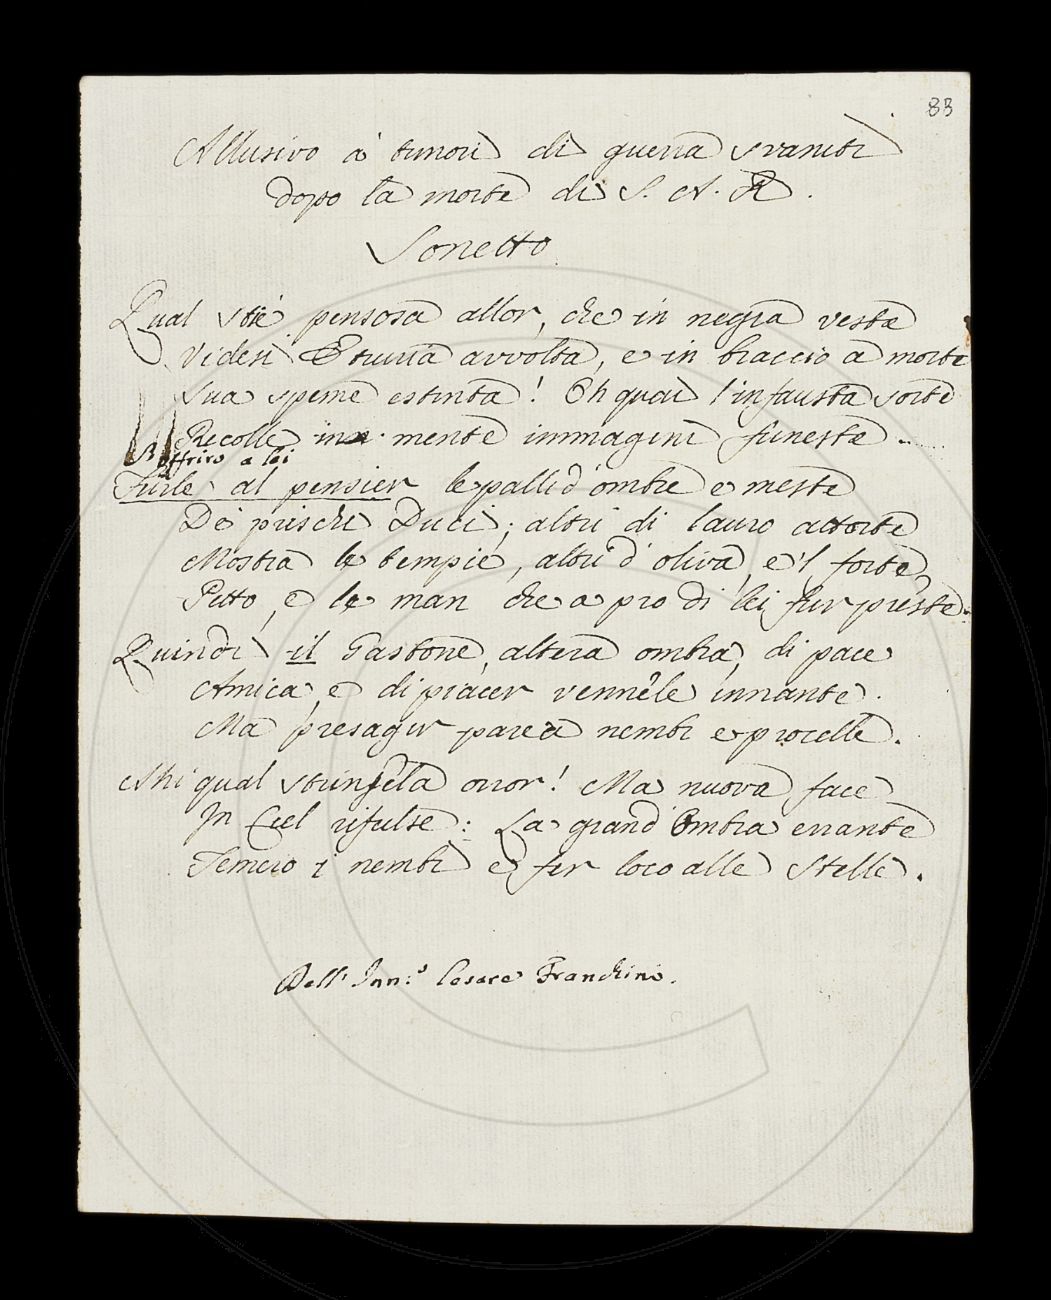 83
Allusivo a' timori di guerra svaniti
dopo la morte di S. A. R.
Sonetto
Qual stiè pensosa allor, che in negra vesta
Videsi Etruria avvolta, e in braccio a morte
Sua speme estinta! Oh quai l'infausta sorte
Recolle in mente immagini funeste.
S'offriro a lei
Furle al pensier le pallid'ombre e meste
De' prischi Duci; altri di lauro attorte
Mostra le tempie, altri d'oliva, e 'l forte
Petto, e le man che a pro di lei fur preste.
Quindi il Gastone, altera ombra, di pace
Amica, e di piacer vennele innante.
Ma presagir parea nembi e procelle.
Ahi qual strinsela orror! Ma nuova face
In Ciel rifulse: La grand'Ombra errante
Temero i nembi e fer loco alle Stelle.
Dell' Inn:º Cesare Franchini.